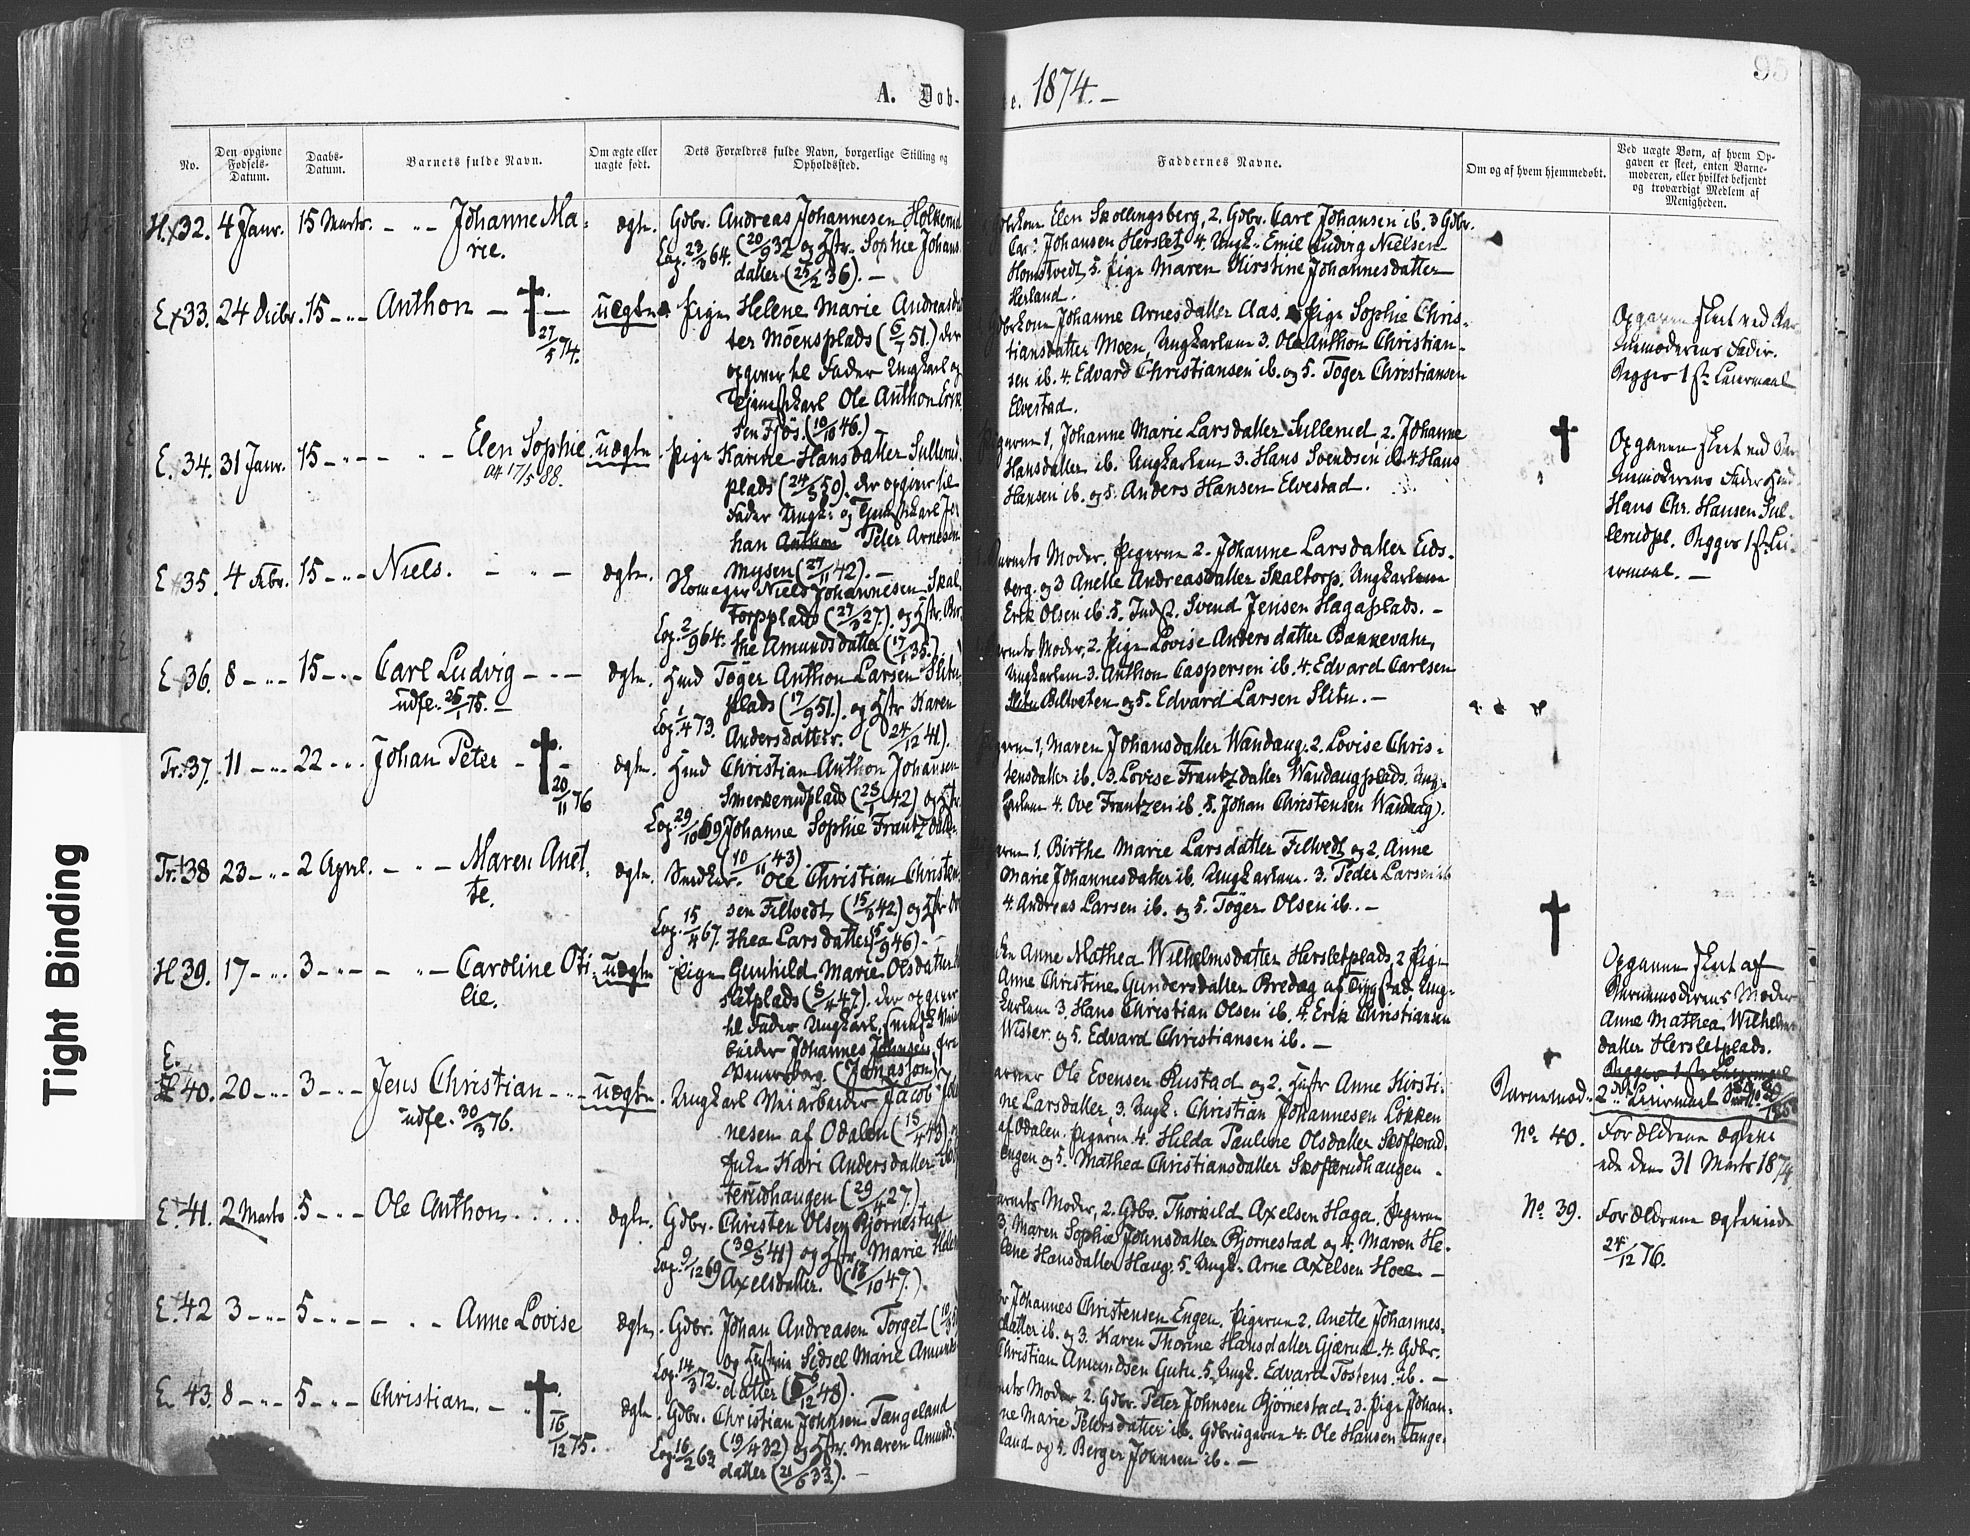 A. Dob-
e. 1874. —
95
No.
Den opgivne Fødsels-Datum.
Daabs-Datum.
Barnets fulde Navn.
Om ægte eller uægte født.
Dets Forældres fulde Navn, borgerlige Stilling og Opholdssted.
Faddernes Navne.
Om og af hvem hjemmedøbt.
Ved uægte Børn, af hvem Op-
gaven er skeet, enten Barne-
moderen, eller hvilket bekjendt
og troværdigt Medlem af
Menigheden.
H. 32. 4 Janr. 15 Marts. Johanne Ma-
rie.
ægte. Gdbr. Andreas Johannesen
(20/9 32 og Hstr. Sophie Johans
datter (25/2 36). —
Elen Skollingsberg, 2. Gdbr. Carl Johansen ib. 3 Gdbr.
Johansen Herslet, 4. Ungk. Emil Ludvig Nielsen
Homstvedt, 5. Pige Maren Kirstine Johannesdatter
Herland.
E. 33. 24 Decbr. 15 Anthon
27/5 74.
uægte Pige Helene Marie Andreasdat
ter Moensplads (6/7 51.) der
opgiver til Fader Ungkarl og
Tjenestkarl Ole Anthon Erik
sen Fjös. (10/10 46.)
Johanne Arnesdatter Aas, Pige Sophie Chris-
tiansdatter Moen, Ungkarlene 3. Ole Anthon Christian-
sen ib. 4. Edvard Christiansen ib. og 5. Töger Christiansen
Elvestad.
Opgaven skeet ved Bar
nemoderens Fader.
Begges 1ste Leiermaal
E. 34. 31 Janr. 15 Elen Sophie
17/5 88.
uægte Pige Karine Hansdatter Sullerud
plads (24/3 50). der opgiver til
Fader Ungk. og Tjenestkarl Jo
han Anthon Peter Arnesen
Mysen (27/11 42). —
Pigerne 1. Johanne Marie Larsdatter Sullerud, 2. Johanne
Hansdatter ib. Ungkarlene 3. Hans Svendsen ib. 4. Hans
Hansen ib. og 5. Anders Hansen Elvestad.
Opgaven skeet ved Bar
nemoderens Fader Hmd
Hans Chr. Hansen Sul-
lerudpl. Begges 1ste Lei-
ermaal. —
E. 35. 4 Febr. 15 Niels.
ægte. Skomager Niels Johannesen Skal
torpplads (27/3 27.). og Hstr. Bir
2/9 64. the Amundsdatter (17/1 35.).
Barnets Moder, Pigerne 2. Johanne Larsdatter Eids-
berg. og 3 Anette Andreasdatter Skaltorp. Ungkarlene
Erik Olsen ib. 5. Indst. Svend Jensen Hagaplads. —
E. 36. 8 15 Carl Ludvig
udfl. 25/1 75. —
ægte. Hmd Töger Anthon Larsen Slitu
plads (17/9 51.). og Hstr Karen
1/4 73. Andersdatter. (24/12 41).
Barnets Moder, 2. Pige Lovise Andersdatter
Ungkarlene 3. Anthon Caspersen ib. 4. Edvard Carlsen
Slitu og 5. Edvard Larsen Slitu. —
Tr. 37. 11 22 Johan Peter
20/11 76
ægte. Hmd Christian Anthon Johansen
Smerkerudplads (25/ 42) og Hstr.
29/10 69 Johanne Sophie Frantzdatter
(10/11 43)
Pigerne 1, Maren Johansdatter Wandaug. 2. Lovise Chris-
tensdatter ib. 3. Lovise Frantzdatter Wandaugplads. Ung-
karlene 4. Ove Frantzen ib. 5. Johan Christensen Wandaug.
Tr. 38 23 2 April. Maren Anet-
te.
ægte. Snedker. Ole Christian Christen
sen Filtvedt (15/8 42) og Hstr
15/4 67. thea Larsdatter ( /9 46). —
1. Birthe Marie Larsdatter Filtvedt og 2. Anne
Marie Johannesdatter ib. Ungkarlene. 3. Peder Larsen ib
4. Andreas Larsen ib. og 5. Töger Olsen ib. —
H 39. 17 3 Caroline Oti-
lie.
uægte Pige Gunhild Marie Olsdatter
sletplads (5/4 47). der opgiver
til Fader Ungkarl,
beider Johannes Johnsen, fra
Wenersborg. (Jonasson)
Anne Mathea Wilhelmsdatter Hersletplads, 2 Pige
Anne Christine Gundersdatter Bredag af Trygstad, Ung-
karlene 3. Hans Christian Olsen ib. 4. Erik Christiansen
Wister. og 5. Edvard Christiansen ib. —
Opgaven skeet af
Barnemoderens Moder
Anne Mathea Wilhelms
datter Hersletplads.
E.
40. 20 3 Jens Christian
udfl. 30/3 76.
uægte. Ungkarl Veiarbeider Jacob
nesen af Odalen (15/4 43)
Enke Kari Andersdatter
terudhaugen (29/4 27.)
Ole Evensen Rustad og 2. Hustr Anne Kirsti-
ne Larsdatter, 3. Ungk. Christian Johannesen Løkken
af Odalen. Pigerne 4. Hilda Pauline Olsdatter Skofterud-
engen og 5. Mathea Christiansdatter Skofterudhaugen.
Barnemod. 2det Leiermaal
No. 40. Forældrene ægtevi-
ede den 31 Marts 1874.
No. 39. Forældrene ægteviede
24/12 76.
E. 41. 2 Marts 5 Ole Anthon
ægte. Gdbr. Christen Olsen Bjørnestad
(30/5 41) og Hstr. Marie Helene
9/12 69 Axelsdatter. (18/10 47.)
Barnets Moder, 2. Gdbr. Thorkild Axelsen Haga, Pigerne
3. Maren Sophie Johnsdatter Bjørnestad og 4. Maren He-
lene Hansdatter Haug. 5. Ungk. Arne Axelsen Hoel —
E. 42 3 5 Anne Lovise
ægte. Gdbr. Johan Andreasen Torget
14/3 72. og Hustru Sidsel Marie Amunds
datter ( /12 48).
Johannes Christensen Engen. Pigerne 2. Anette Johannes-
datter ib. og 3. Karen Thorine Hansdatter Gjærud. 4. Gdbr.
Christian Amundsen Gutu. 5. Ungk. Edvard Tostens. ib. —
E. 43. 8 5 Christian.
16/12 75.
ægte. Gdbr. Christian Johnsen Tangeland
(19/4 32) og Hstr. Maren Amunds
16/2 62 datter (21/6 33). —
Barnets Moder 2. Gdbr. Peter Johnsen Bjørnestad, 3. Pige Johan-
ne Marie Petersdatter ib. Gdbrugerne 4. Ole Hansen Tange-
land og 5. Berger Johnsen ib. —
Tight Binding